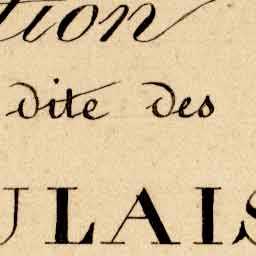 tion
dite des
ULAIS